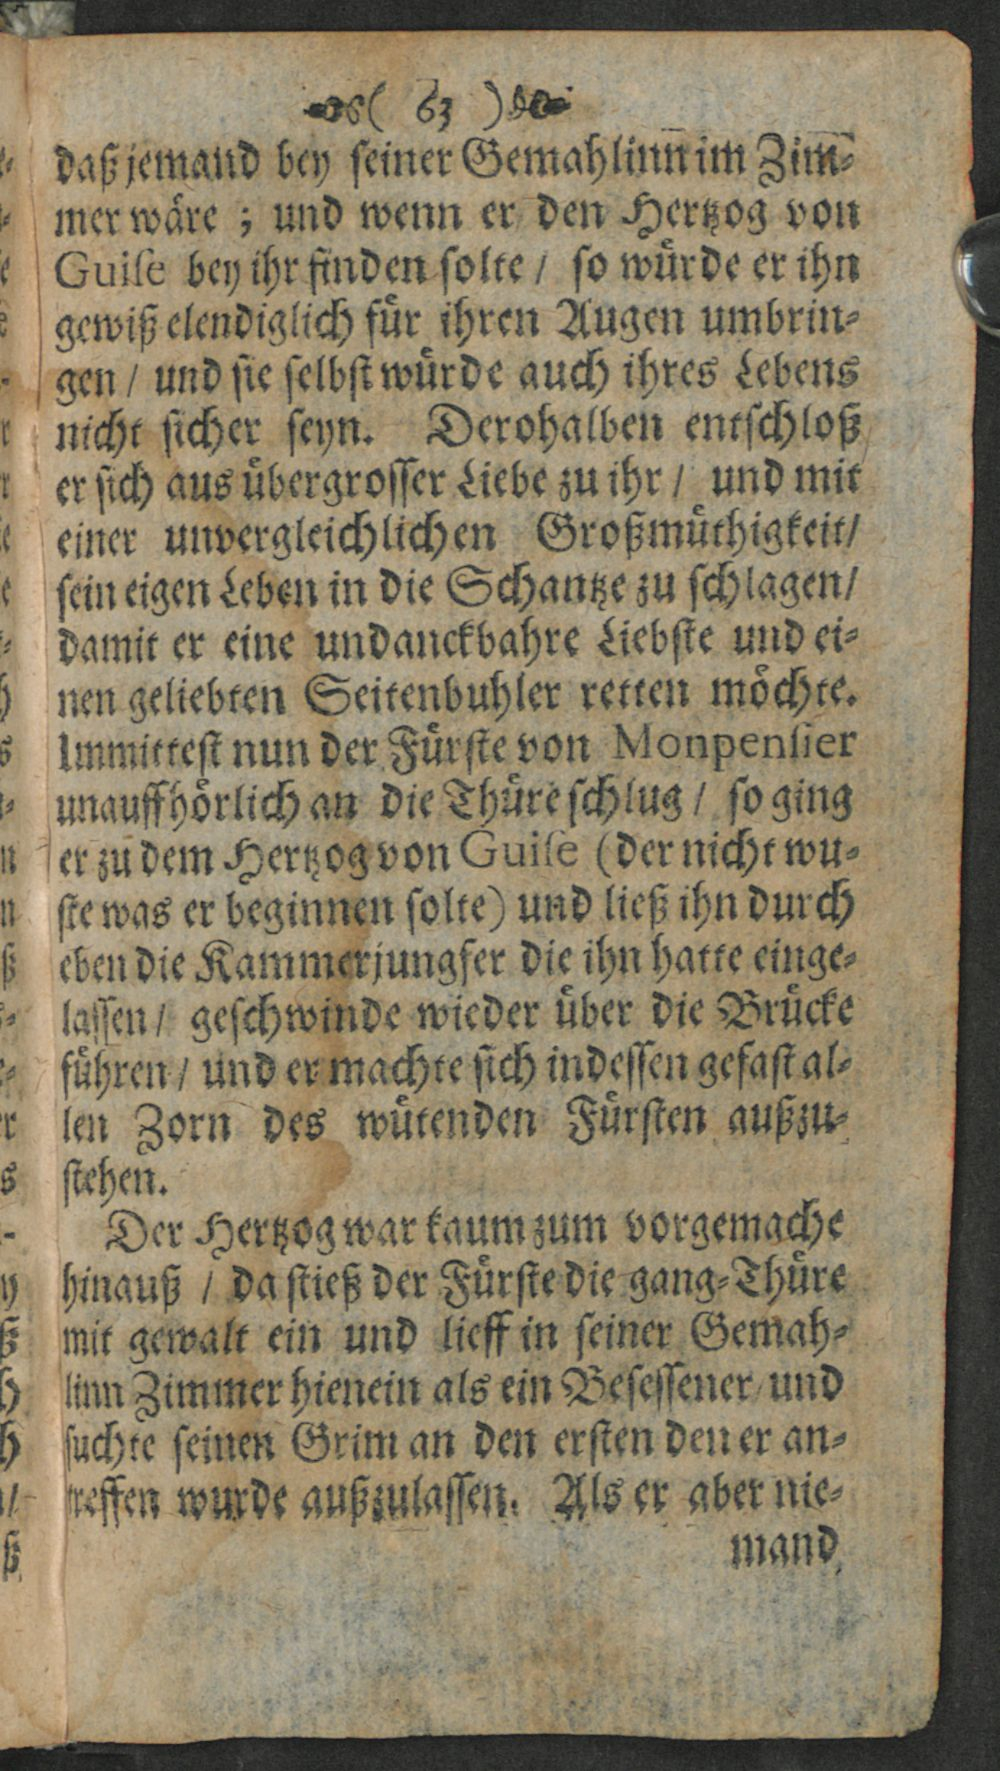 ( 63 )
daß jemand bey seiner Gemahlinn im Zim̅-
mer wäre ; und wenn er den Hertzog von
Guise bey ihr finden solte / so würde er ihn
gewiß elendiglich für ihren Augen umbrin-
gen / und sie selbst würde auch ihres Lebens
nicht sicher seyn. Derohalben entschloß
er sich aus übergrosser Liebe zu ihr / und mit
einer unvergleichlichen Großmüthigkeit/
sein eigen Leben in die Schantze zu schlagen/
damit er eine undanckbahre Liebste und ei-
nen geliebten Seitenbuhler retten möchte.
Immittest nun der Fürste von Monpensier
unauffhörlich an die Thüre schlug / so ging
er zu dem Hertzog von Guise (der nicht wu-
ste was er beginnen solte) und ließ ihn durch
eben die Kammerjungfer die ihn hatte einge-
lassen / geschwinde wieder über die Brücke
führen / und er machte sich indessen gefast al-
len Zorn des wütenden Fürsten außzu-
stehen.
Der Hertzog war kaum zum vorgemache
hinauß / da stieß der Fürste die gang-Thüre
mit gewalt ein und lieff in seiner Gemah-
linn Zimmer hienein als ein Besessener / und
suchte seinen Grim an den ersten den er an-
treffen wurde außzulassen. Als er aber nie-
mand